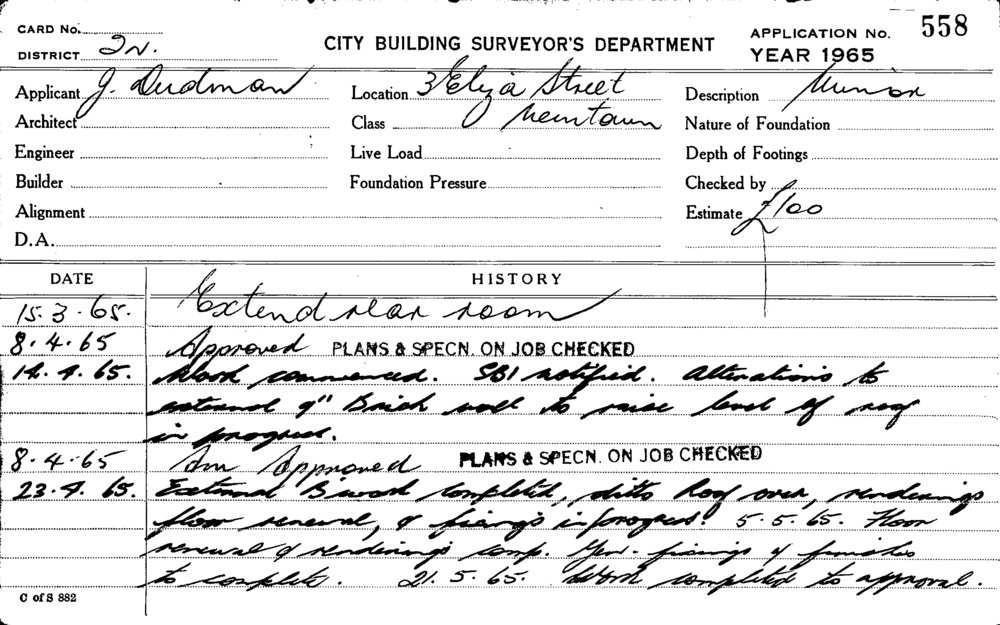 CARD No.
DISTRICT 2N.
CITY BUILDING SURVEYOR'S DEPARTMENT
APPLICATION No. 558
YEAR 1965
Applicant J. Dudman
Location 3 Eliza Street
Description Minor
Architect
Class Newtown
Nature of Foundation
Engineer
Live Load
Depth of Footings
Builder
Foundation Pressure
Checked by
Alignment
Estimate £100
D.A.
DATE HISTORY
15.3.65. Extend rear room
8.4.65 Approved PLANS & SPECN. ON JOB CHECKED
14.4.65. Work commenced. SBI notified. Alterations to
external 9" Brick wall to raise level of roof
in progress.
8.4.65 Am Approved PLANS & SPECN. ON JOB CHECKED
23.4.65. External B'work completed, ditto Roof over, renderings
floor renewal, & fixings in progress. 5.5.65. Floor
renewal & renderings comp. Gen. fixings & finishes
to complete. 21.5.65. Work completed to approval.
C of S 882